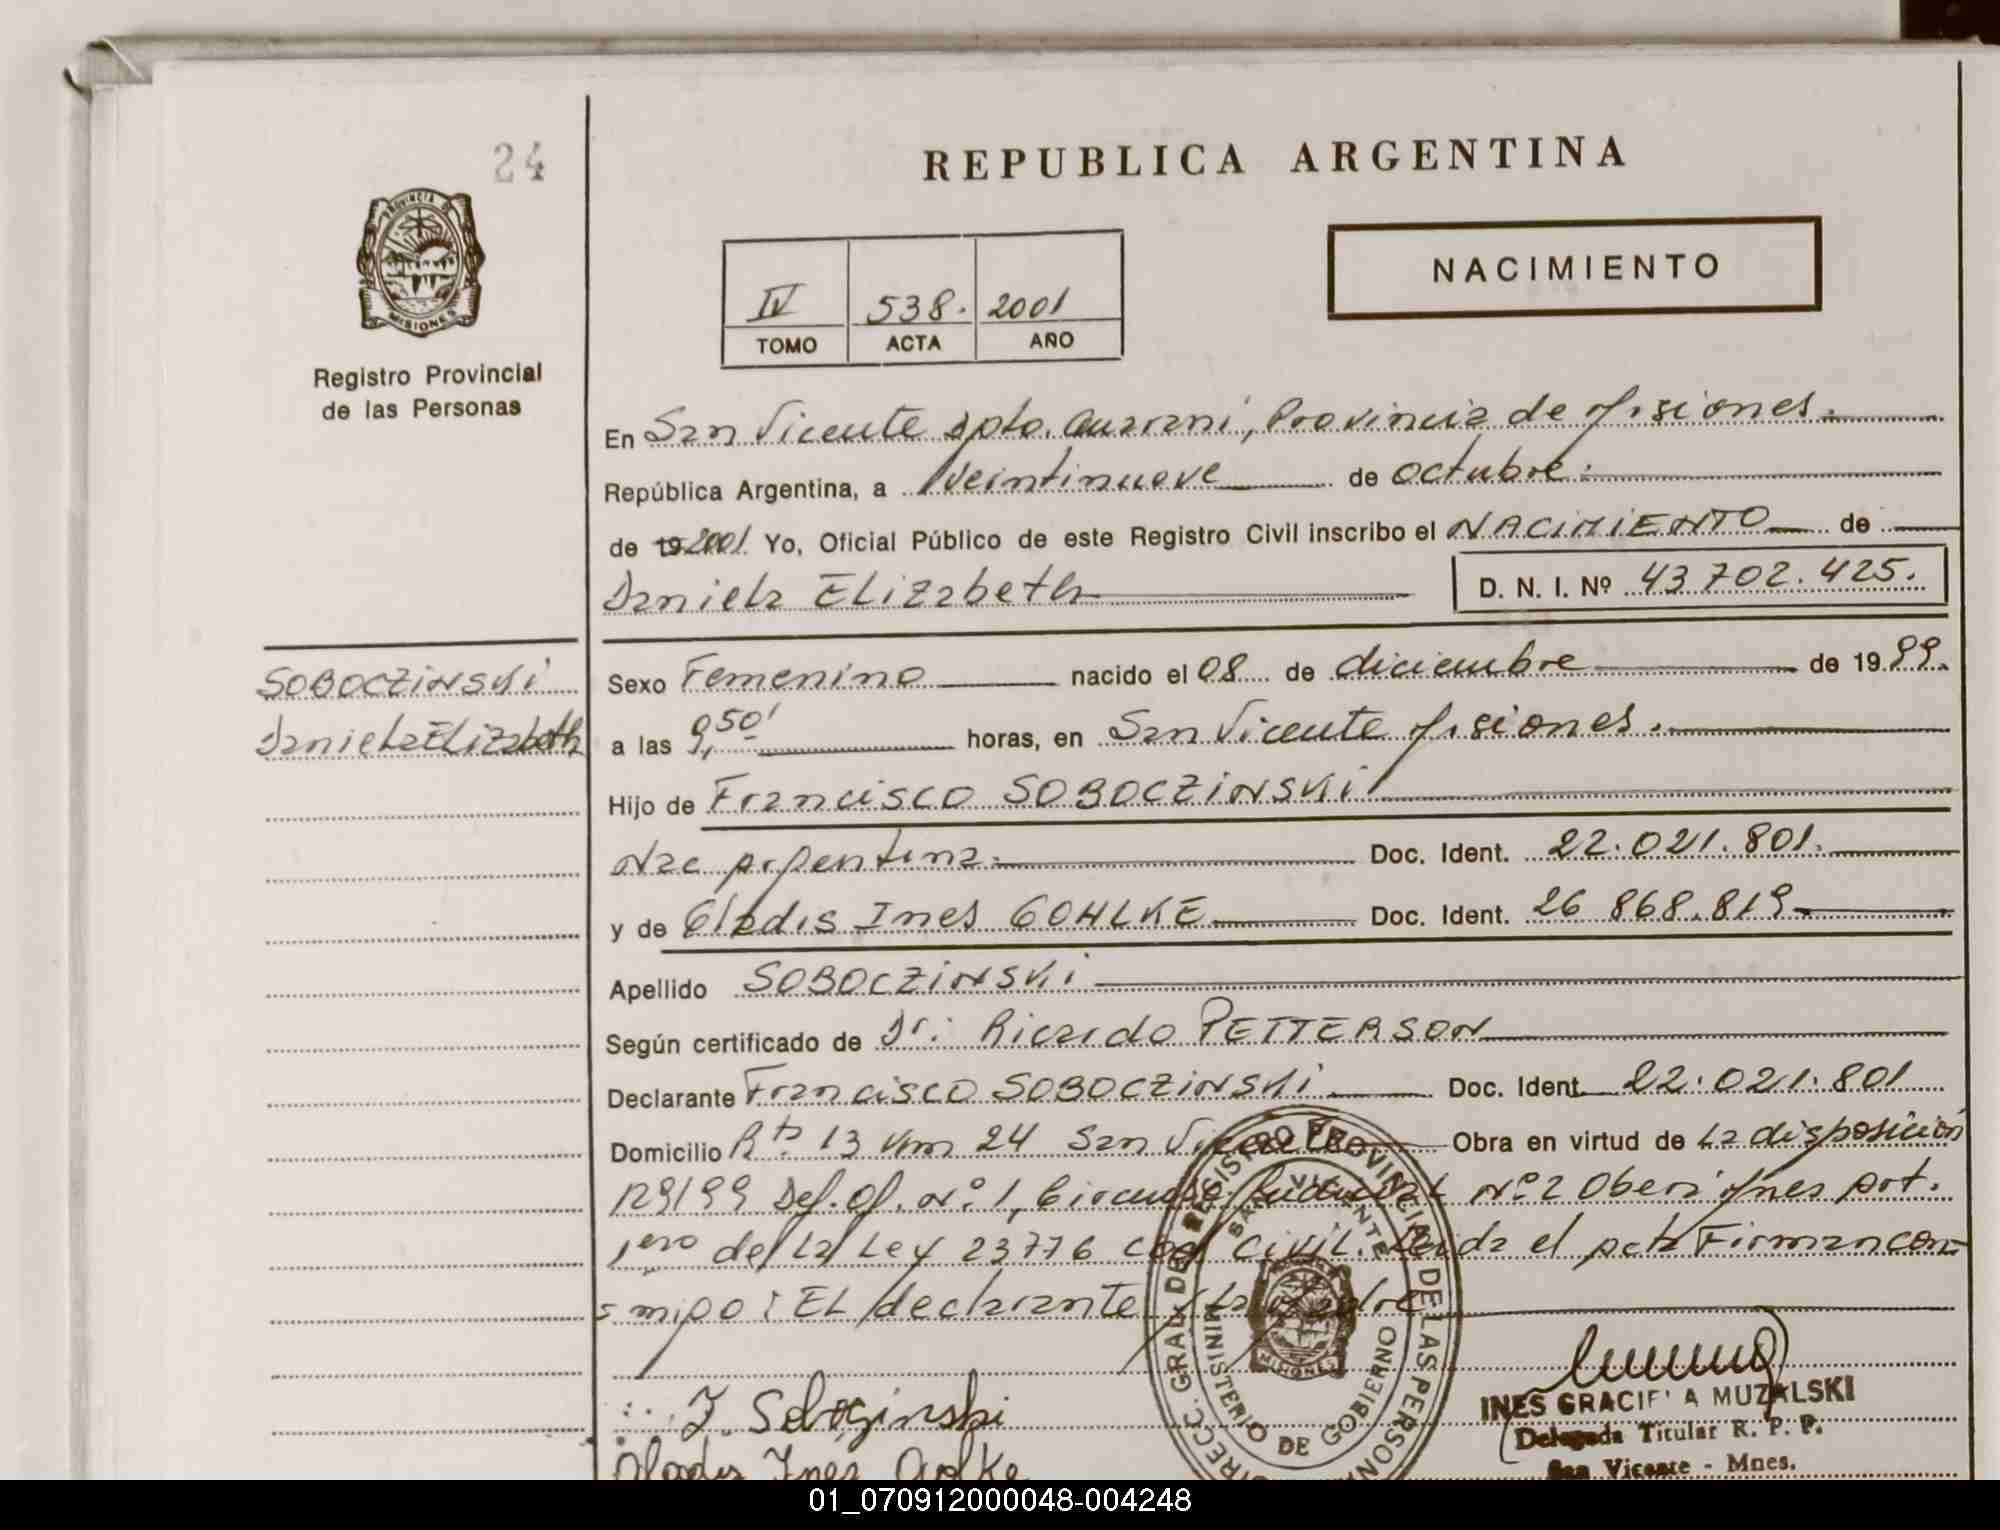 24
REPUBLICA ARGENTINA
PROVINCIA DE
MISIONES
Registro Provincial
de las Personas
NACIMIENTO
IV 538. 2001
TOMO ACTA AÑO
En San Vicente dpto. Guarani, Provincia de Misiones.
República Argentina, a Veintinueve de octubre.
de 19 2001. Yo, Oficial Público de este Registro Civil inscribo el NACIMIENTO de
Daniela ELizabeth D. N. I. Nº 43.702.425.
SOBOCZINSKi
Daniela ELizabeth
Sexo Femenino nacido el 08 de diciembre de 1999.
a las 9,50' horas, en San Vicente Misiones.
Hijo de Francisco SOBOCZiNSKi
Nac Argentina. Doc. Ident. 22.021.801.
y de Gladis Ines GOHLKE Doc. Ident. 26 868.819
Apellido SOBOCZiNSKi
Según certificado de Dr. Ricardo PETTERSON
Declarante Francisco SOBOCZiNSKi Doc. Ident. 22.021.801
Domicilio Rta 13 Km 24 San Vicente Obra en virtud de La disposición
129/99 Def. Of. Nº 1, Judicial Nº 2 Obera Mnes Art.
1ero de La Ley 23776 cod civil. Leida el acta Firman con-
=migo: EL declarante y La Madre
F. Soboczinski
Gladis Ines Golke
DIRECC. GRAL. DE REGISTRO PROVINCIAL DE LAS PERSONAS
SAN VICENTE
MINISTERIO DE GOBIERNO
MISIONES
INES GRACIE A MUZALSKI
Delegada Titular R. P. P.
San Vicente - Mnes.
01_070912000048-004248